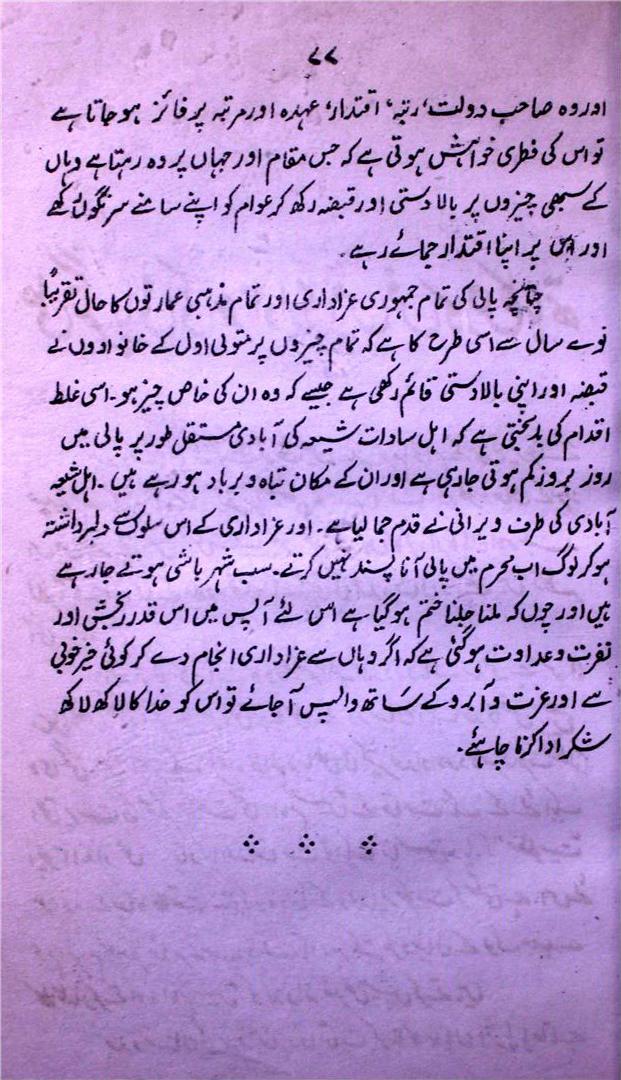 ۷۷
اور وہ صاحب دولت، رتبہ، اقتدار، عہدہ اور مرتبہ پر فائز ہوجاتا ہے
تو اس کی فطری خواہش ہوتی ہے کہ جس مقام اور جہاں پر وہ رہتا ہے وہاں
کے سبھی چیزوں پر بالادستی اور قبضہ رکھ کر عوام کو اپنے سامنے سرنگوں رکھے
اور اس پر اپنا اقتدار جمائے رہے۔
چنانچہ پالی کی تمام جمہوری عزاداری اور تمام مذہبی عمارتوں کا حال تقریباً
نوے سال سے اسی طرح کا ہے کہ تمام چیزوں پر متولی اول کے خانوادوں نے
قبضہ اور اپنی بالادستی قائم رکھی ہے جیسے کہ وہ ان کی خاص چیز ہو۔ اسی غلط
اقدام کی بدبختی ہے کہ اہل سادات شیعہ کی آبادی مستقل طور پر پالی میں
روز بروز کم ہوتی جارہی ہے اور ان کے مکان تباہ و برباد ہو رہے ہیں۔ اہل شیعہ
آبادی کی طرف ویرانی نے قدم جما لیا ہے۔ اور عزاداری کے اس سلوک سے دلبرداشتہ
ہوکر لوگ اب محرم میں پالی آنا پسند نہیں کرتے۔ سب شہر باشی ہوتے جارہے
ہیں اور چوں کہ ملنا جلنا ختم ہوگیا ہے اس لئے آپس میں اس قدر رنجش اور
نفرت و عداوت ہوگئی ہے کہ اگر وہاں سے عزاداری انجام دے کر کوئی خیر خوبی
سے اور عزت و آبرو کے ساتھ واپس آجائے تو اس کو خدا کا لاکھ لاکھ
شکر ادا کرنا چاہئے۔